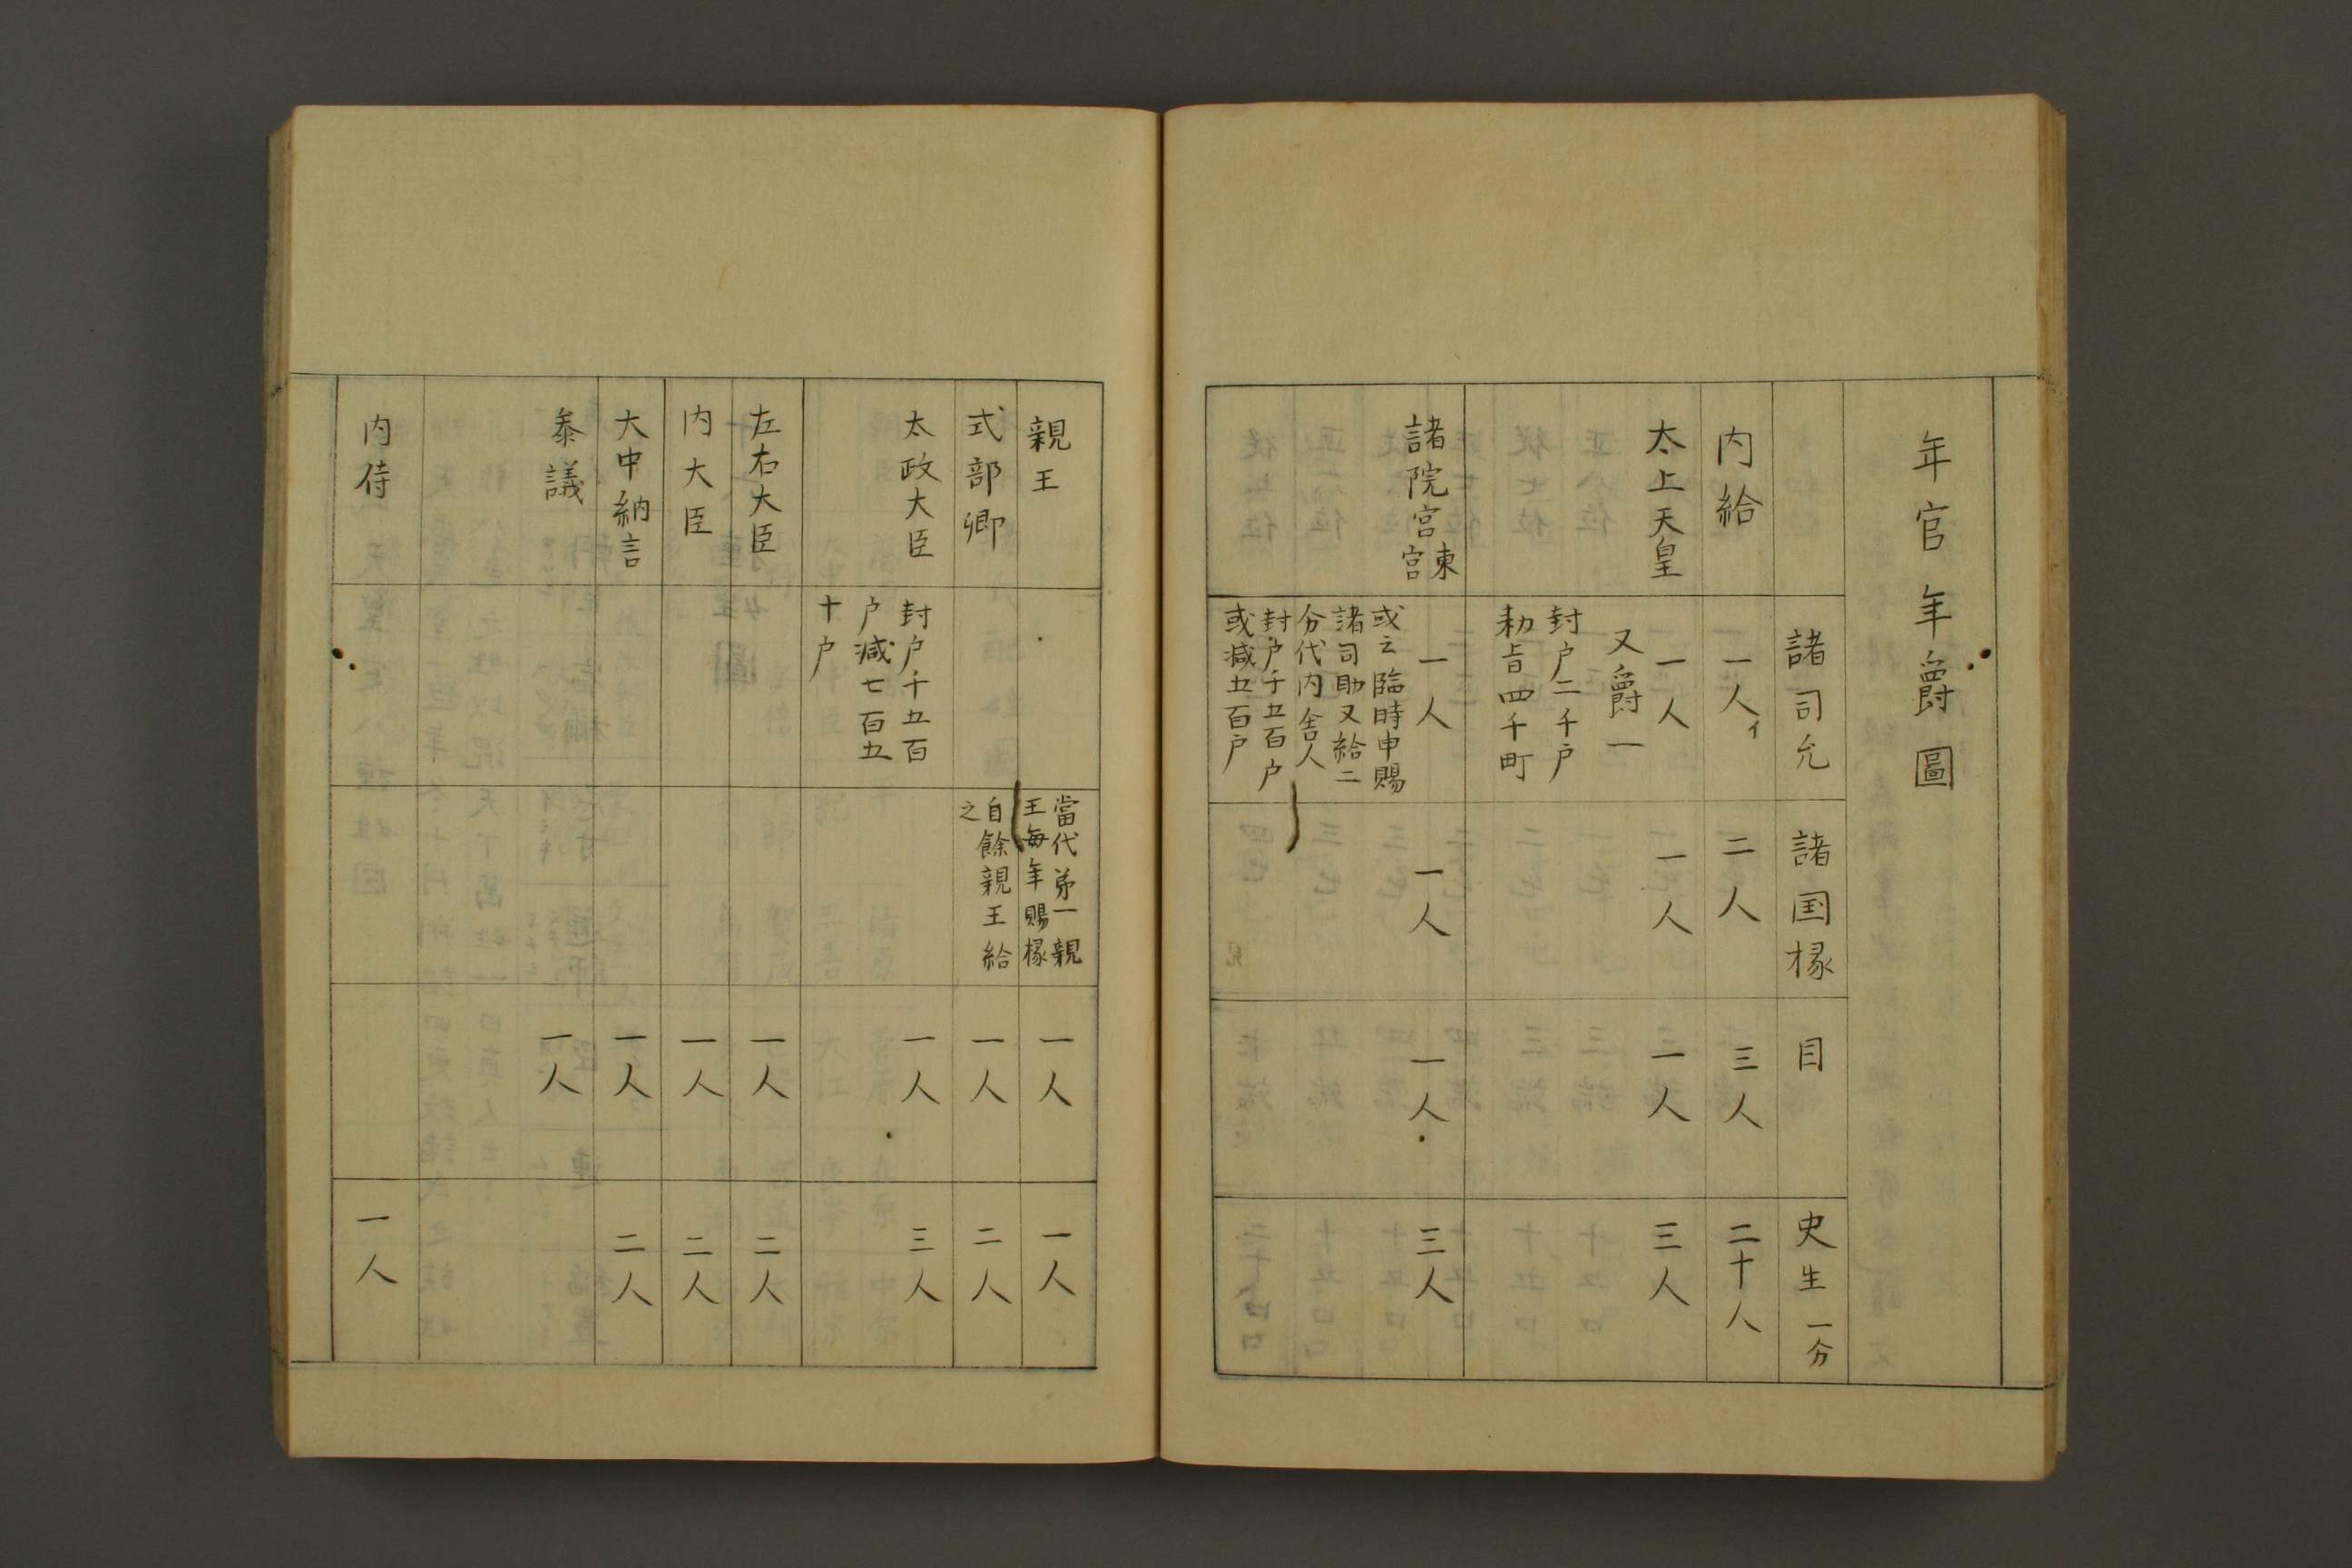 年官年爵圖
諸司允 諸国椽 目 史生一分
内給 一人イ 二人 三人 二十人
太上天皇 一人 一人 一人 三人
又爵一
封户二千户
勑旨四千町
諸院宮東宮 一人 一人 一人 三人
或云臨時申賜
諸司助又給二
分代内舎人
封户千五百户
或減五百户
親王 當代苐一親王毎年賜椽 一人 一人
式部卿 自餘親王給之 一人 二人
太政大臣 封户千五百 一人 三人
户減七百五
十户
左右大臣 一人 二人
内大臣 一人 二人
大中納言 一人 二人
叅議 一人
内侍 一人